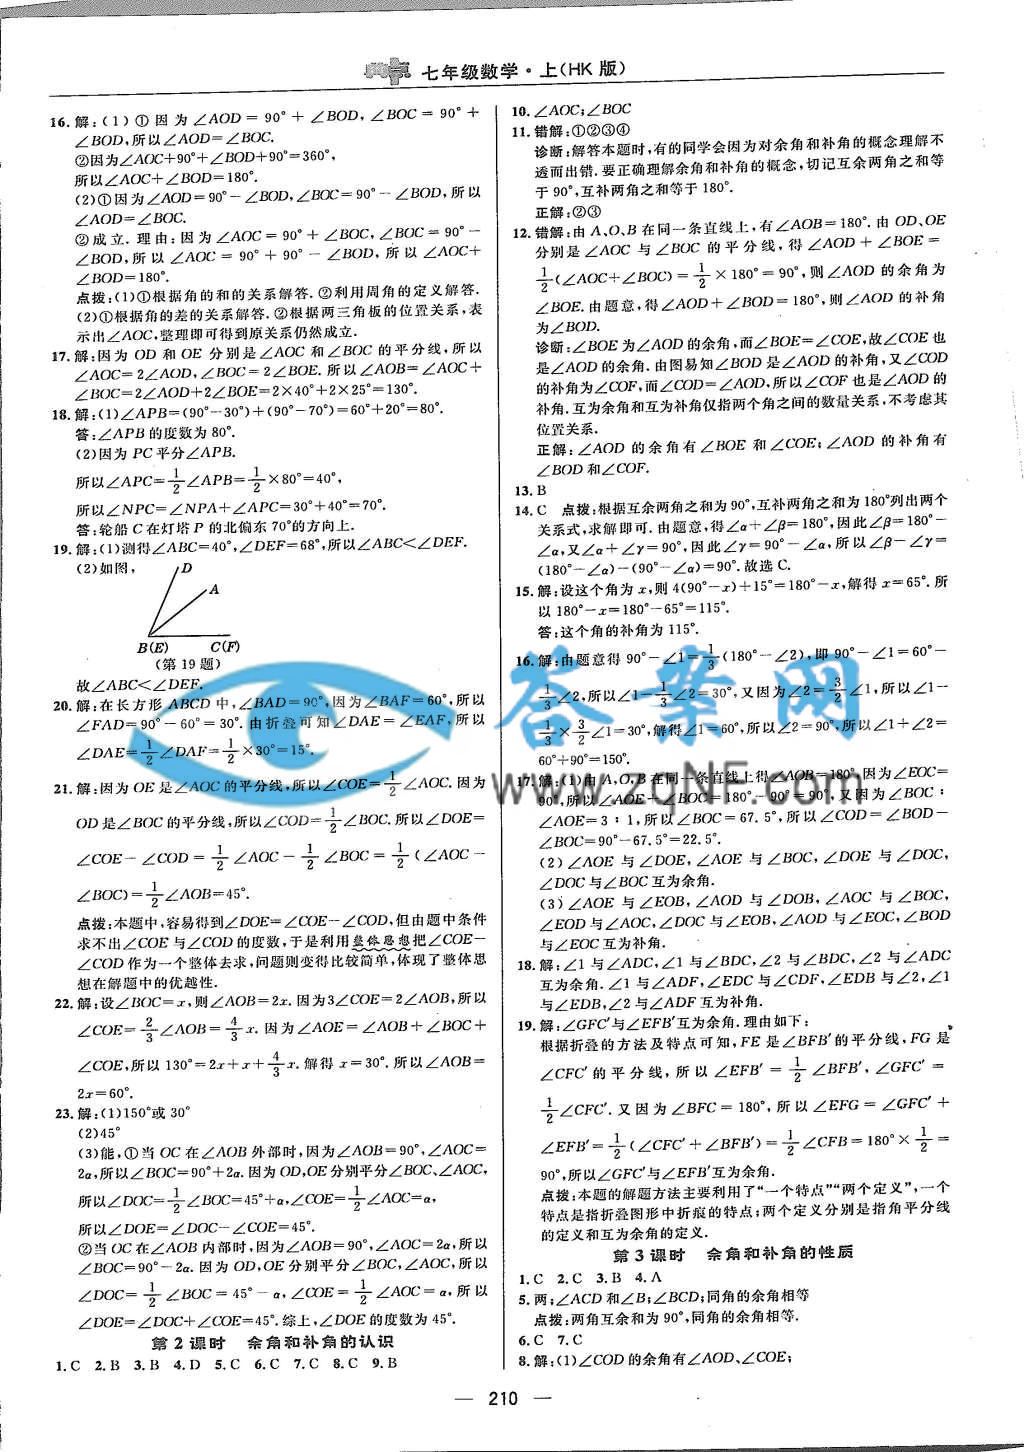 典点 七年级数学·上(HK版)
16.解:(1)①因为∠AOD=90°+∠BOD,∠BOC=90°+
∠BOD,所以∠AOD=∠BOC.
②因为∠AOC+90°+∠BOD+90°=360°,
所以∠AOC+∠BOD=180°.
(2)①因为∠AOD=90°-∠BOD,∠BOC=90°-∠BOD,所以
∠AOD=∠BOC.
②成立.理由:因为∠AOC=90°+∠BOC,∠BOC=90°-
∠BOD,所以∠AOC=90°+90°-∠BOD,所以∠AOC+
∠BOD=180°.
点拨:(1)①根据角的和的关系解答.②利用周角的定义解答.
(2)①根据角的差的关系解答.②根据两三角板的位置关系,表
示出∠AOC,整理即可得到原关系仍然成立.
17.解:因为OD和OE分别是∠AOC和∠BOC的平分线,所以
∠AOC=2∠AOD,∠BOC=2∠BOE.所以∠AOB=∠AOC+
∠BOC=2∠AOD+2∠BOE=2×40°+2×25°=130°.
18.解:(1)∠APB=(90°-30°)+(90°-70°)=60°+20°=80°.
答:∠APB的度数为80°.
(2)因为PC平分∠APB.
所以∠APC=1/2∠APB=1/2×80°=40°,
所以∠NPC=∠NPA+∠APC=30°+40°=70°.
答:轮船C在灯塔P的北偏东70°的方向上.
19.解:(1)测得∠ABC=40°,∠DEF=68°,所以∠ABC<∠DEF.
(2)如图,
D
A
B(E) C(F)
(第19题)
故∠ABC<∠DEF.
20.解:在长方形ABCD中,∠BAD=90°,因为∠BAF=60°,所以
∠FAD=90°-60°=30°.由折叠可知∠DAE=∠EAF,所以
∠DAE=1/2∠DAF=1/2×30°=15°.
21.解:因为OE是∠AOC的平分线,所以∠COE=1/2∠AOC.因为
OD是∠BOC的平分线,所以∠COD=1/2∠BOC.所以∠DOE=
∠COE-∠COD=1/2∠AOC-1/2∠BOC=1/2(∠AOC-
∠BOC)=1/2∠AOB=45°.
点拨:本题中,容易得到∠DOE=∠COE-∠COD,但由题中条件
求不出∠COE与∠COD的度数,于是利用整体思想把∠COE-
∠COD作为一个整体去求,问题则变得比较简单,体现了整体思
想在解题中的优越性.
22.解:设∠BOC=x,则∠AOB=2x.因为3∠COE=2∠AOB,所以
∠COE=2/3∠AOB=4/3x.因为∠AOE=∠AOB+∠BOC+
∠COE,所以130°=2x+x+4/3x.解得x=30°.所以∠AOB=
2x=60°.
23.解:(1)150°或30°
(2)45°
(3)能,①当OC在∠AOB外部时,因为∠AOB=90°,∠AOC=
2α,所以∠BOC=90°+2α.因为OD,OE分别平分∠BOC,∠AOC,
所以∠DOC=1/2∠BOC=45°+α,∠COE=1/2∠AOC=α,
所以∠DOE=∠DOC-∠COE=45°.
②当OC在∠AOB内部时,因为∠AOB=90°,∠AOC=2α,所以
∠BOC=90°-2α.因为OD,OE分别平分∠BOC,∠AOC,所以
∠DOC=1/2∠BOC=45°-α,∠COE=1/2∠AOC=α,所以
∠DOE=∠DOC+∠COE=45°.综上,∠DOE的度数为45°.
第2课时 余角和补角的认识
1.C 2.B 3.B 4.D 5.C 6.C 7.C 8.C 9.B
10.∠AOC;∠BOC
11.错解:①②③④
诊断:解答本题时,有的同学会因为对余角和补角的概念理解不
透而出错.要正确理解余角和补角的概念,切记互余两角之和等
于90°,互补两角之和等于180°.
正解:②③
12.错解:由A、O、B在同一条直线上,有∠AOB=180°.由OD、OE
分别是∠AOC与∠BOC的平分线,得∠AOD+∠BOE=
1/2(∠AOC+∠BOC)=1/2×180°=90°,则∠AOD的余角为
∠BOE.由题意,得∠AOD+∠BOD=180°,则∠AOD的补角
为∠BOD.
诊断:∠BOE为∠AOD的余角,而∠BOE=∠COE,故∠COE也
是∠AOD的余角.由图易知∠BOD是∠AOD的补角,又∠COD
的补角为∠COF,而∠COD=∠AOD,所以∠COF也是∠AOD的
补角.互为余角和互为补角仅指两个角之间的数量关系,不考虑其
位置关系.
正解:∠AOD的余角有∠BOE和∠COE;∠AOD的补角有
∠BOD和∠COF.
13.B
14.C 点拨:根据互余两角之和为90°,互补两角之和为180°列出两个
关系式,求解即可.由题意,得∠α+∠β=180°,因此∠β=180°-
∠α,又∠α+∠γ=90°,因此∠γ=90°-∠α,所以∠β-∠γ=
(180°-∠α)-(90°-∠α)=90°.故选C.
15.解:设这个角为x,则4(90°-x)+15°=180°-x,解得x=65°.所
以180°-x=180°-65°=115°.
答:这个角的补角为115°.
16.解:由题意得90°-∠1=1/3(180°-∠2),即90°-∠1=60°-
1/3∠2,所以∠1-1/3∠2=30°,又因为∠2=3/2∠1,所以∠1-
1/3×3/2∠1=30°,解得∠1=60°,所以∠2=90°,所以∠1+∠2=
60°+90°=150°.
17.解:(1)由A,O,B在同一条直线上得∠AOB=180°,因为∠EOC=
90°,所以∠AOE+∠BOC=180°-90°=90°,又因为∠BOC:
∠AOE=3:1,所以∠BOC=67.5°,所以∠COD=∠BOD-
∠BOC=90°-67.5°=22.5°.
(2)∠AOE与∠DOE,∠AOE与∠BOC,∠DOE与∠DOC,
∠DOC与∠BOC互为余角.
(3)∠AOE与∠EOB,∠AOD与∠DOB,∠AOC与∠BOC,
∠EOD与∠AOC,∠DOC与∠EOB,∠AOD与∠EOC,∠BOD
与∠EOC互为补角.
18.解:∠1与∠ADC,∠1与∠BDC,∠2与∠BDC,∠2与∠ADC
互为余角.∠1与∠ADF,∠EDC与∠CDF,∠EDB与∠2,∠1
与∠EDB,∠2与∠ADF互为补角.
19.解:∠GFC′与∠EFB′互为余角.理由如下:
根据折叠的方法及特点可知,FE是∠BFB′的平分线,FG是
∠CFC′的平分线,所以∠EFB′=1/2∠BFB′,∠GFC′=
1/2∠CFC′.又因为∠BFC=180°,所以∠EFG=∠GFC′+
∠EFB′=1/2(∠CFC′+∠BFB′)=1/2∠CFB=180°×1/2=
90°,所以∠GFC′与∠EFB′互为余角.
点拨:本题的解题方法主要利用了“一个特点”“两个定义”,一个
特点是指折叠图形中折痕的特点;两个定义分别是指角平分线
的定义和互为余角的定义.
第3课时 余角和补角的性质
1.C 2.C 3.B 4.A
5.两;∠ACD和∠B;∠BCD;同角的余角相等
点拨:两角互余和为90°,同角的余角相等.
6.C 7.C
8.解:(1)∠COD的余角有∠AOD、∠COE;
答案网
www.zqnf.com
— 210 —